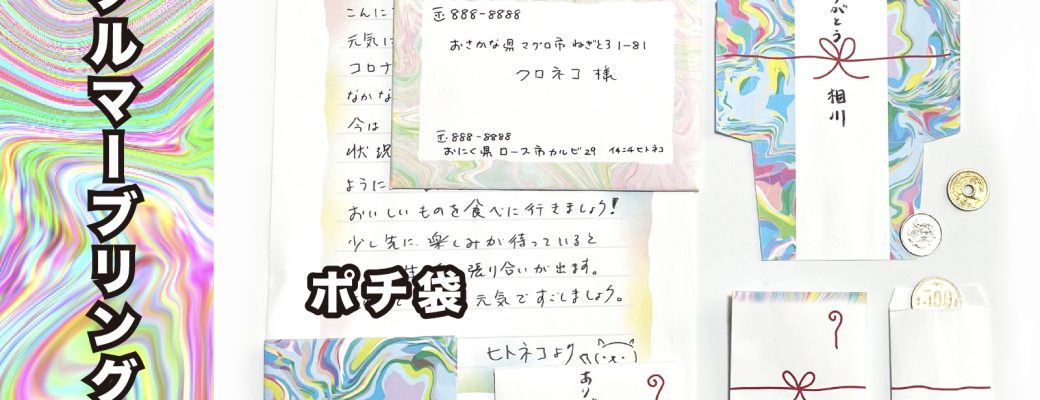 ルマーブリング
こんに
元気に
コロナ
なかな
今は
状況
ように
おいしいものを食べに行きましょう!
少し先に、楽しみが待っていると
張り合いが出ます。
元気ですごしましょう。
ヒトネコより
〒888-8888
おさかな県マグロ市ねぎとろ1-81
クロネコ様
〒888-8888
おにく県ロース市カルビ29 イチニチヒトネコ
ポチ袋
りがとう
相川
あり
500